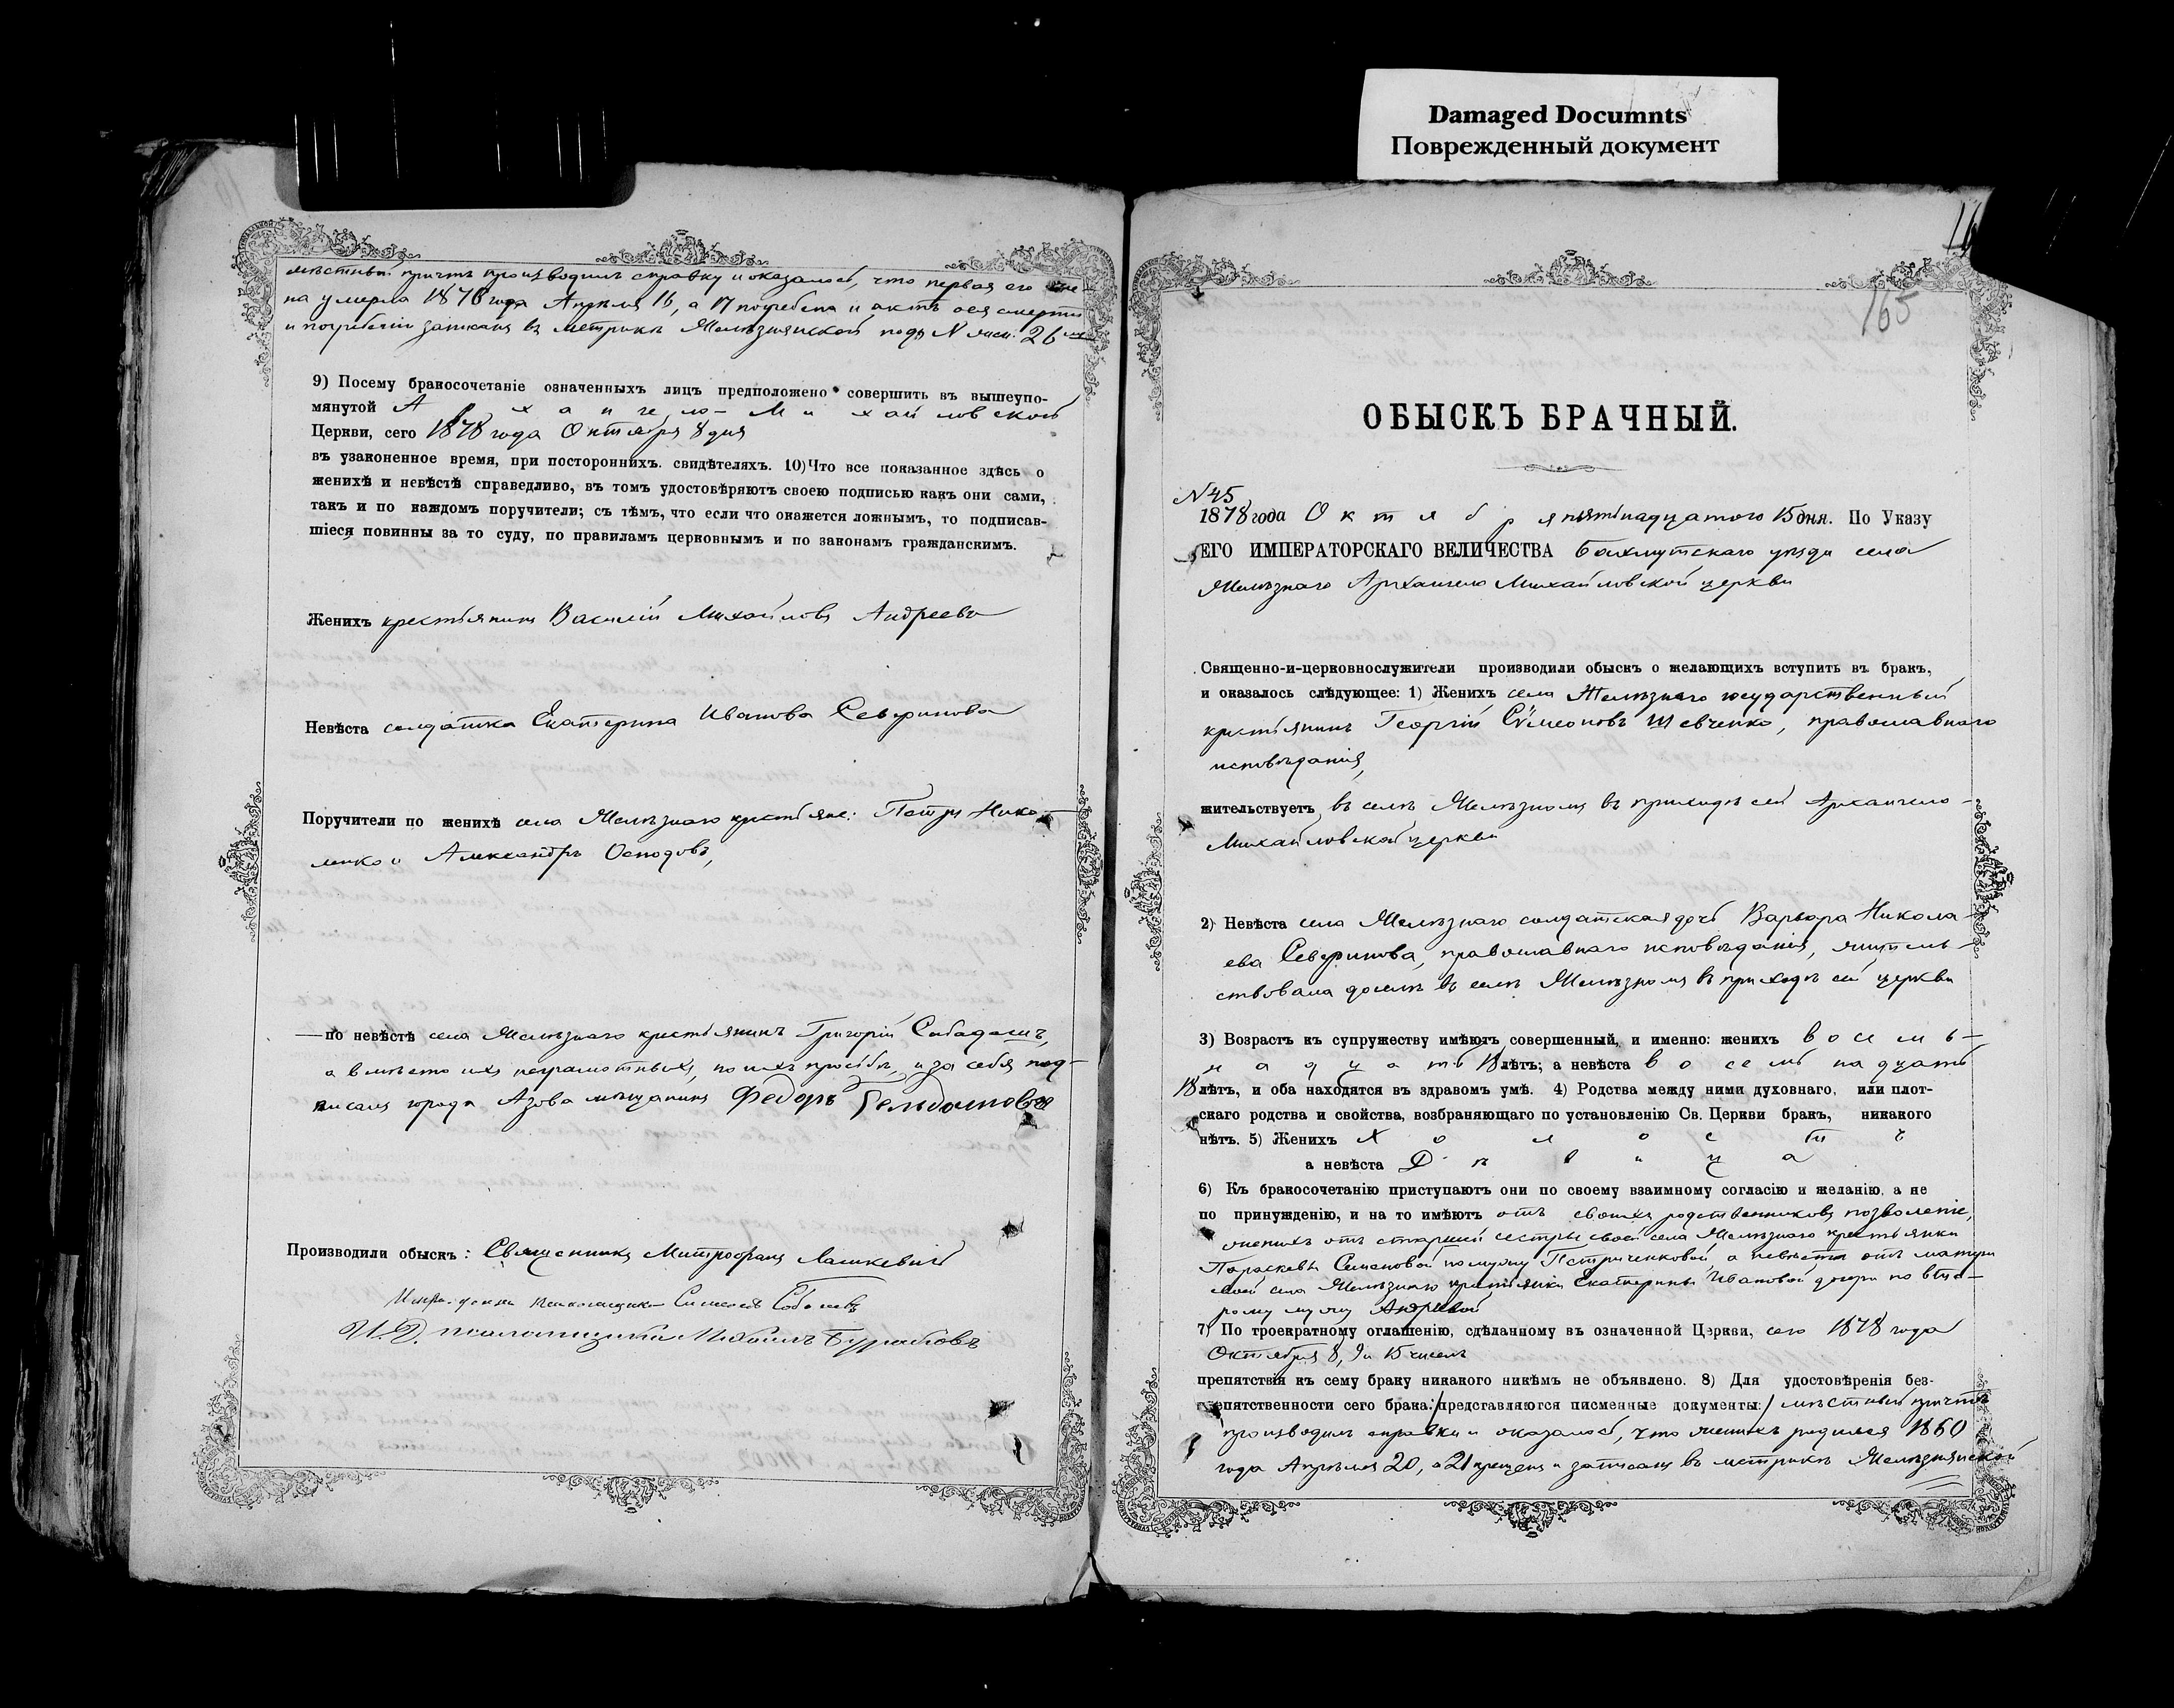 Damaged Documnts
Поврежденный документ
мѣстный причтъ производилъ справку и оказалось, что первая его же-
на умерла 1878 года Апрѣля 16, а 17 погребена и актъ о ея смерти
и погребеніи записанъ въ метрикѣ Желѣзнянской подъ N 26
9) Посему бракосочетаніе означенныхъ лицъ предположено совершить въ вышеупо-
мянутой Архангело-Михайловской
Церкви, сего 1878 года Октября 8 дня
въ узаконенное время, при постороннихъ. свидѣтеляхъ. 10) Что все показанное здѣсь о
женихѣ и невѣстѣ справедливо, въ томъ удостовѣряютъ своею подписью какъ они сами,
такъ и по каждомъ поручители; съ тѣмъ, что если что окажется ложнымъ, то подписав-
шіеся повинны за то суду, по правиламъ церковнымъ и по законамъ гражданскимъ.
Женихъ крестьянинъ Василій Михайловъ Андреевъ
Невѣста солдатка Екатерина Иванова Северинова
Поручители по женихѣ села Желѣзнаго крестьяне: Петръ Нико-
ленко и Александръ
— по невѣстѣ села Желѣзнаго крестьянинъ Григорій
а вмѣсто ихъ неграмотныхъ, по ихъ просьбѣ, и за себя под-
писалъ города Азова мѣщанинъ Федоръ
Производили обыскъ: Священникъ Митрофанъ Лашкевичъ
псаломщика Симеонъ
И. Д. псаломщика
16
165
ОБЫСКЪ БРАЧНЫЙ.
N 45
1878 года Октября пятнадцатого 15 дня. По Указу
ЕГО ИМПЕРАТОРСКАГО ВЕЛИЧЕСТВА Бахмутскаго уѣзда села
Желѣзнаго Архангело Михайловской церкви
Священно-и-церковнослужители производили обыскъ о желающихъ вступить въ бракъ,
и оказалось слѣдующее: 1) Женихъ села Желѣзнаго государственный
крестьянинъ Георгій Сѵмеоновъ Шевченко, православнаго
исповѣданія,
жительствуетъ въ селѣ Желѣзномъ въ приходѣ сей Архангело-
Михайловской церкви
2) Невѣста села Желѣзнаго солдатская дочь Варвара Никола-
ева Северинова, православнаго исповѣданія, житель-
ствовала доселѣ въ селѣ Желѣзномъ въ приходѣ сей церкви
3) Возрастъ къ супружеству имѣютъ совершенный, и именно: женихъ восемь-
надцать 18 лѣтъ; а невѣста восемьнадцать
18 лѣтъ, и оба находятся въ здравомъ умѣ. 4) Родства между ними духовнаго, или плот-
скаго родства и свойства, возбраняющаго по установленію Св. Церкви бракъ, никакого
нѣтъ. 5) Женихъ Холостъ
а невѣста Дѣвица
6) Къ бракосочетанію приступаютъ они по своему взаимному согласію и желанію, а не
по принужденію, и на то имѣютъ отъ своихъ родственниковъ позволеніе,
женихъ отъ старшей сестры своей села Желѣзнаго крестьянки
Параскевы Семеновой по мужу Петриченковой, а невѣста отъ матери
своей села Желѣзнаго крестьянки Екатерины Ивановой по вто-
рому мужу Андреевой
7) По троекратному оглашенію, сдѣланному въ означенной Церкви, сего 1878 года
Октября 8, 9 и 15 чиселъ
препятствія къ сему браку никакого никѣмъ не объявлено. 8) Для удостовѣренія без-
препятственности сего брака: /представляются писменные документы:/ мѣстный причтъ
производилъ справки и оказалось, что женихъ родился 1860
года Апрѣля 20, а 21 крещенъ и записанъ въ метрикѣ Желѣзнянской